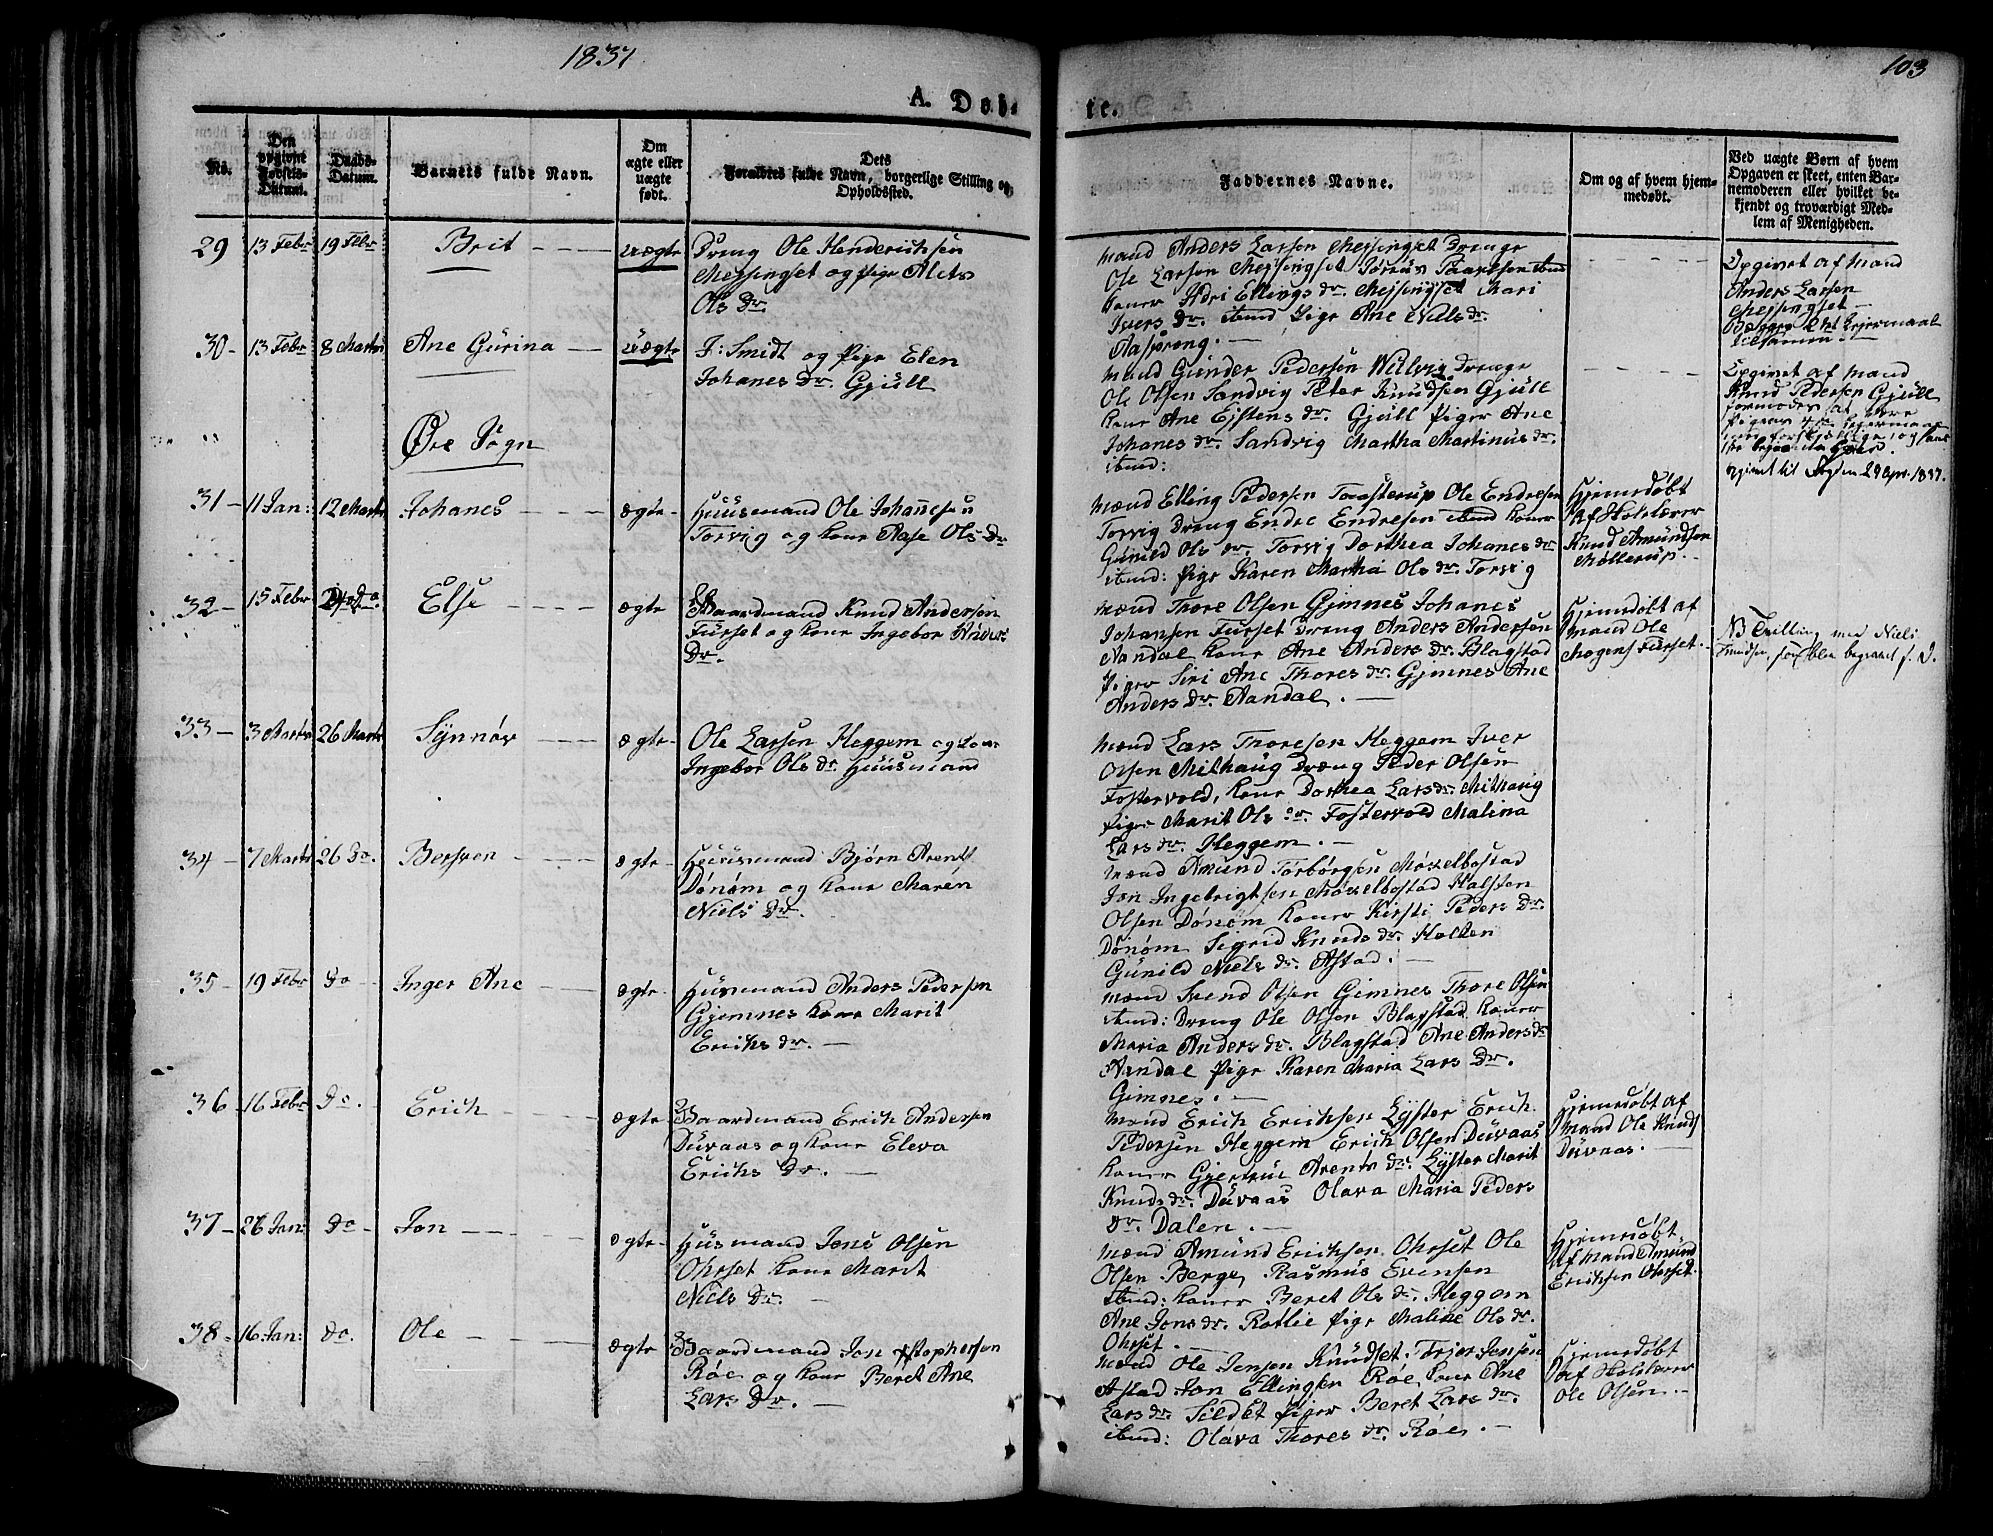 1837
103
A. Døb-
te.
No.
Den opgivne Fødsels-Datum.
Daabs-Datum.
Barnets fulde Navn.
Om ægte eller uægte født.
Dets Forældres fulde Navn, borgerlige Stilling og Opholdssted.
Faddernes Navne.
Om og af hvem hjem-
medøbt.
Ved uægte Børn af hvem
Opgaven er skeet, enten Bar-
nemoderen eller hvilket be-
kjendt og troværdigt Med-
lem af Menigheden.
29 13 Febr 19 Febr Brit uægte
Dreng Ole Henderichsen
Mejsingset og Pige
Ols Dr.
Mænd Anders Larsen Mejsingset Drenge
Ole Larsen Mejsingset
Koner Ellings dr. Mejsingset Mari
Ivers Dr. ibmd Pige Ane Nils dr.
Aasprong.
Opgivet af Mand
Anders Larsen
Mejsingset
30 - 13 Febr 8 Marts Ane Gurina uægte
F: Smidt og Pige Elen
Johanes Dr. Gjüll
Mænd Gunder Pedersen Drenge
Ole Olsen Sandvig Peter Knudsen Gjüll
Kone Ane Ejstens dr. Gjüll Piger Ane
Johanes dr. Sandvig Martha Martinus dr.
ibmd:
Opgivet af Mand
Knud Pedersen Gjüll
Øre Sogn
31 - 11 Jan: 12 Marts Johanes ægte
Huusmand Ole Johannesen
Torvig og Kone Aase Ols Dr
Mænd Elling Pedersen Ole Endresen
Torvig Dreng Endre Endresen ibmd Koner
Gunild Ols dr. Torvig Dorthea Johanes dr
ibmd: Pige Karen Martha Ols dr. Torvig
Hjemedøbt
Af Skolelærer
Knud Amundsen
Møllerup.
32 - 15 Febr Do. Else ægte
Gaardmand Knud Andersen
Furset og Kone Ingebor Anders
Dr.
Mænd Thore Olsen Gimnes Johanes
Johansen Furset Dreng Anders Andersen
Aandal Kone Ane Anders Dr. Blagstad
Piger Siri Ane Thores dr. Gjimnes Ane
Anders Dr. Aandal.
Hjemedøbt af
Mand Ole
Mogens Furset.
NB Tvilling med Niels
Knudsen, som blev begravet
33 - 3 Marts 26 Marts Synnøv ægte
Ole Larsen Heggem og Kone
Ingebor Ols dr. Huusmand
Mænd Lars Thoresen Heggem Iver
Olsen Milhaug Dreng Peder Olsen
Fostervold, Kone Dorthea Lars dr. Milhaug
Piger Marit Ols dr. Fostervold Malina
Lars dr. Heggem.
34 - 7 Marts 26 Do. Bersven ægte
Huusmand Bjørn Arents
Dønøm og Kone Maren
Niels Dr.
Mænd Amund Torbørgsen Moxelbostad
Jon Ingebrigtsen Moxelbostad Halsten
Olsen Dønøm Koner Kirsti Peders Dr.
Dønøm Sigrid Knuds dr. Holten
Gunild Niels dr. Astad.
35 - 19 Febr Do Inger Ane ægte
Husmand Anders Pedersen
Gjemnes Kone Marit
Erichs dr.
Mænd Svend Olsen Gimnes Thore Olsen
ibmd: Dreng Ole Olsen Blagstad Koner
Maria Anders dr. Blagstad Ane Anders dr
Aandal Pige Karen Maria Lars Dr.
Gimnes.
36 - 16 Febr Do. Erich ægte
Gaardmand Erich Andersen
Duvaas og Kone Eleva
Erichs Dr.
Mænd Erich Erichsen Lyster Erich
Pedersen Heggem Erich Olsen Duvaas
Koner Gjertrue Arents dr. Lyster Marit
Knuds dr. Duvaas Olava Maria Peders
Dr. Dalen.
Hjemedøbt af
Mand Ole Knuds
Duvaas.
37 - 26 Jan: Do Jon ægte
Husmand Jons Olsen
Ohrset Kone Marit
Niels Dr.
Mænd Amund Erichsen Ohrset Ole
Olsen Berge, Rasmus Evensen
ibmd: Koner Beret Ols dr. Heggem
Ane Jons dr. Rotlie Pige Maline Ols dr.
Ohrset.
Hjemedøbt
Af Mand Amund
Erichsen Ohrset.
38 - 16 Jan: Do. Ole ægte
Gaardmand Jon
Røe og Kone Beret Ane
Lars Dr.
Mænd Ole Jensen Knudset Jensen
Astad Jon Ellingsen Røe Kone Ane
Lars dr. Sildet Piger Beret Lars dr.
ibmd: Olava Thores dr. Røe.
Hjemedøbt
af Skolelærer
Ole Olsen